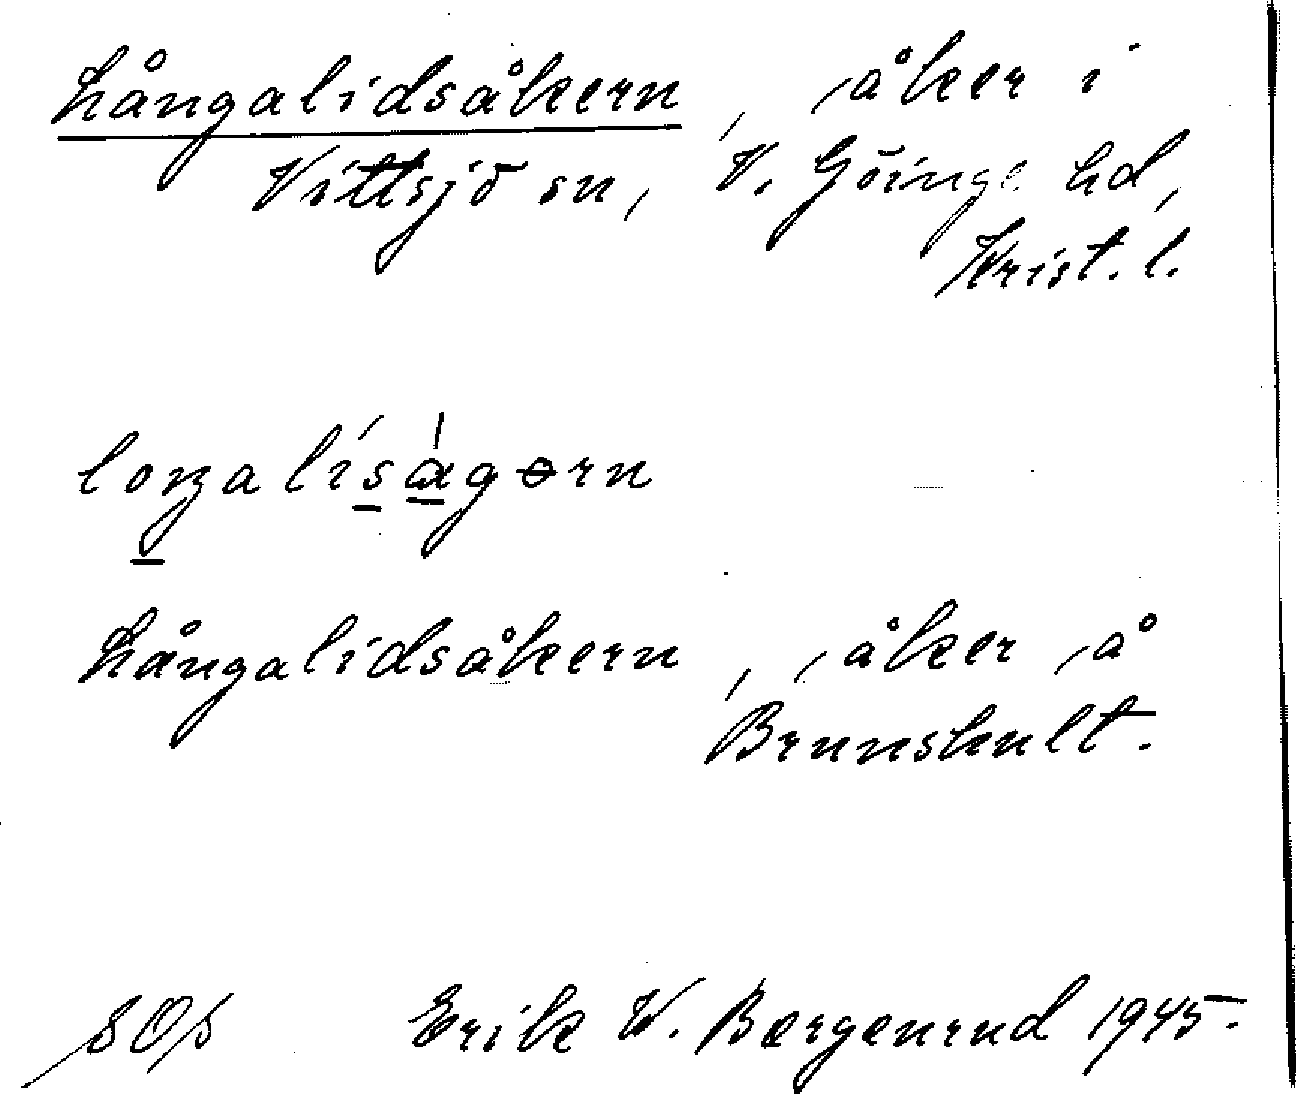 Långalidsåkern, åker i
Vittsjö sn, V. Göinge hd,
Krist. l.
loŋaliságørn
Långalidsåkern, åker å
Brunshult.
SOS Erik W. Bergenrud 1945.